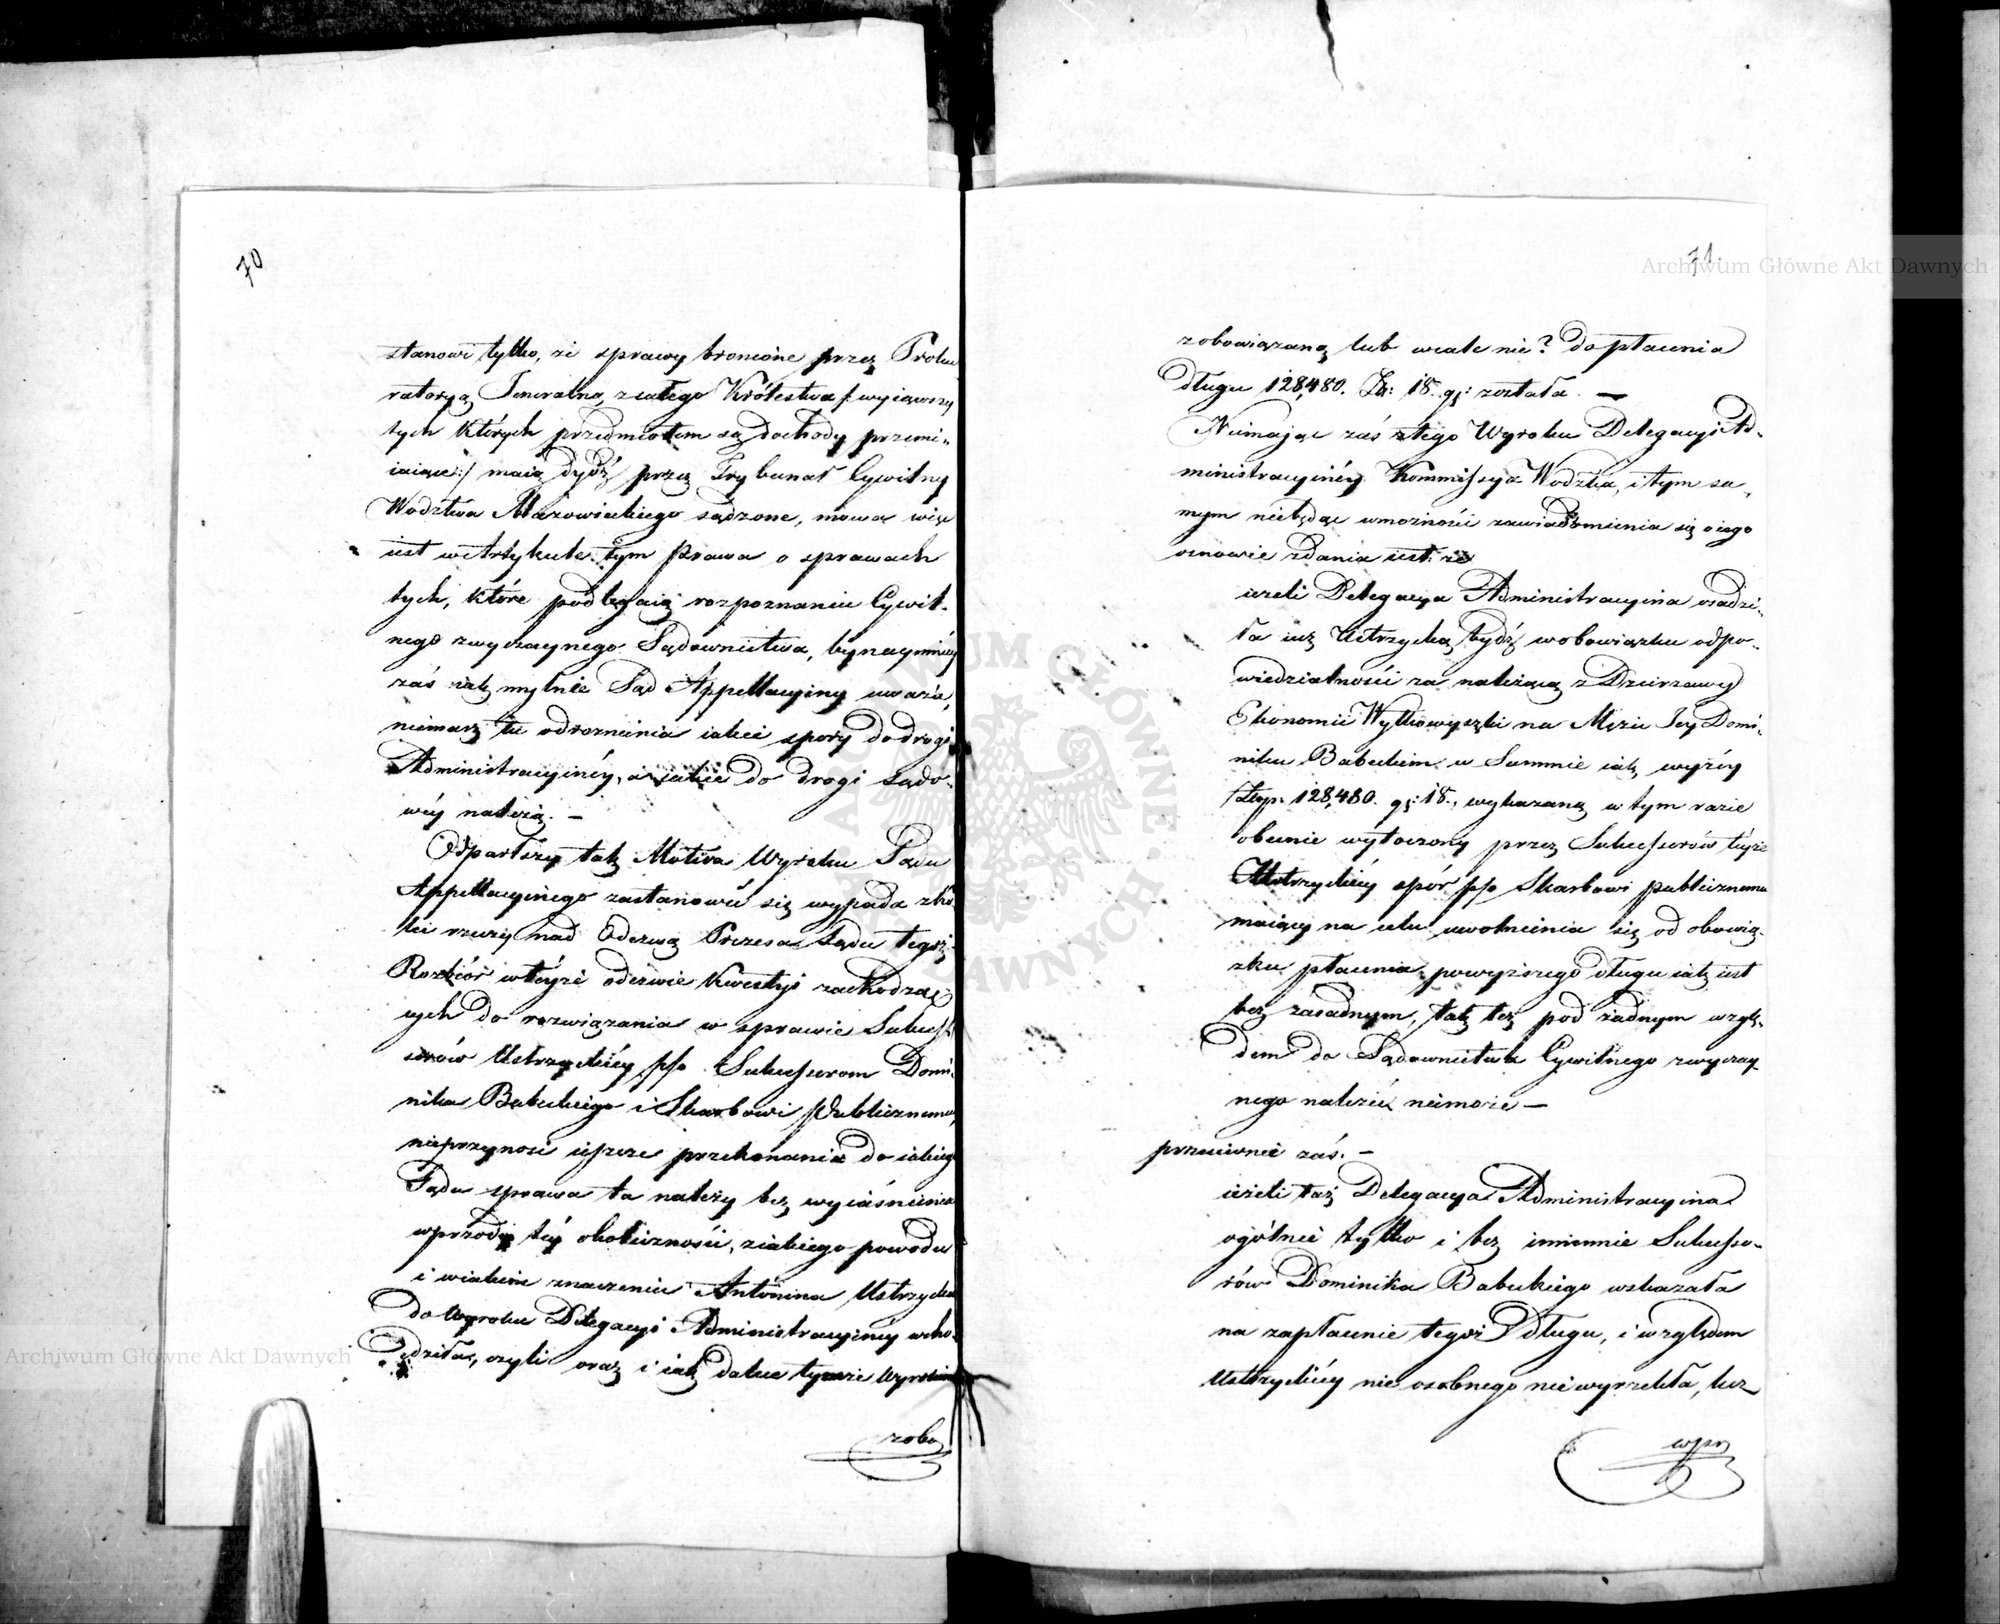 70
stanowi tylko, że sprawy bronione przez Proku
ratoryą Jeneralną, z całego Królestwa /: wyiąwszy
tych których przedmiotem są dochody przemi-
iaiące :/ maią bydź przez Trybunał Cywilny
Wodztwa Mazowieckiego sądzone, mowa więc
iest w Artykule tym Prawa o sprawach
tych, które podlegaią rozpoznaniu Cywil-
nego zwyczaynego Sądownictwa, bynaymniéy
zaś iak mylnie Sąd Appellacyiny uważa,
niemasz tu odroznienia iakie spory do drogi
Administracyinéy, a iakie do drogi sądo-
wéy należą. —
Odparłszy tak Motiva Wyroku Sądu
Appellacyinego zastanowić się wypada z ko-
lei rzeczy nad Odezwą Prezesa Sądu tegoż.
Rozbiór w téyże odezwie kwestyi zachodzą-
cych do rozwiązania w sprawie Sukces-
sorów Ustrzyckiéy p/o Sukcessorom Domi-
nika Babeckiego i Skarbowi Publicznemu,
nieprzynosi ieszcze przekonania do iakiego
Sądu sprawa ta należy bez wyiaśnienia
wprzody téy okoliczności, z iakiego powodu
i w iakiem znaczeniu Antonina Ustrzycka
do Wyroku Delegacyi Administracyiney wcho-
dziła, czyli oraz i iak dalece tymże Wyrokiem
zobo
71.
zobowiązaną lub wcale nie? do płacenia
długu 128,480. Zł: 18. gr: została. —
Niemaiąc zaś z tego Wyroku Delegacyi Ad-
ministracyinéy Kommissya Wodztwa, i tym sa-
mym niebędąc w możności zawiadomienia się o iego
osnowie zdania iest: że
ieżeli Delegacya Administracyina osądzi-
ła iuż Ustrzycką bydź w obowiązku odpo-
wiedzialności za należącą z Dzierzawy
Ekonomii Wyłkowyszki na Mężu Jey Domi-
niku Babeckim w Summie iak wyżéy
Złłp. 128,480. gr: 18., wykazaną w tym razie
obecnie wytoczony przez Sukcessorów téyże
Ustrzyckiéy spór p/o Skarbowi publicznemu
maiący na celu uwolnienia się od obowią-
zku płacenia powyższego długu iak iest
bez zasadnym, tak też pod żadnym wzglę-
dem do Sądownictwa Cywilnego zwyczay-
nego należeć niemoże —
przeciwnie zaś. —
ieżeli taż Delegacya Administracyina
ogólnie tylko i bez imiennie Sukcesso-
rów Dominika Babeckiego wskazała
na zapłacenie tegoż Długu, i względem
Ustrzyckiéy nic osobnego nie wyrzekła, lecz
wpr
Archiwum Główne Akt Dawnych
Archiwum Główne Akt Dawnych
ARCHIWUM GŁÓWNE AKT DAWNYCH